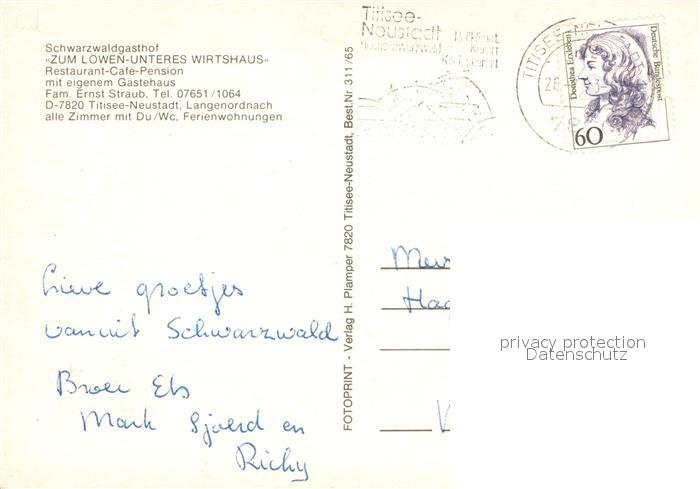 Schwarzwaldgasthof
«ZUM LÖWEN-UNTERES WIRTSHAUS»
Restaurant-Café-Pension
mit eigenem Gästehaus
Fam. Ernst Straub, Tel. 07651/1064
D-7820 Titisee-Neustadt, Langenordnach
alle Zimmer mit Du/Wc, Ferienwohnungen
Lieve groetjes
vanuit Schwarzwald
Broer Els
Mark Sjoerd en
Richy
FOTOPRINT - Verlag H. Plamper 7820 Titisee-Neustadt, Best.Nr. 311/65
Titisee-
Neustadt
Heilklimat.
Kurort
Hochschwarzwald
Kneippkurort
TITISEE-N
Dorothea Erxleben
Deutsche Bundespost
60
privacy protection
Datenschutz